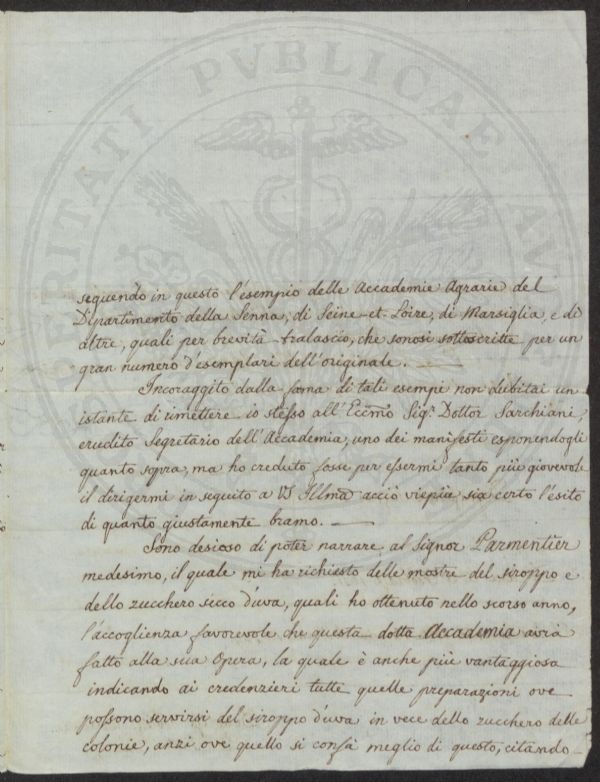 seguendo in questo l'esempio delle Accademie Agrarie del
Dipartimento della Senna, di Seine-et-Loire, di Marsiglia, e di
altre, quali per brevità tralascio, che sonosi sottoscritte per un
gran numero d'esemplari dell'originale. —
Incoraggito dalla fama di tali esempi non dubitai un
istante di rimettere io stesso all'Eccmo Sigr. Dottor Sarchiani,
erudito Segretario dell'Accademia, uno dei manifesti esponendogli
quanto sopra, ma ho creduto fosse per essermi tanto più giovevole
il dirigermi in seguito a VS Illma acciò viepiù sia certo l'esito
di quanto giustamente bramo. —
Sono desioso di poter narrare al Signor Parmentier
medesimo, il quale mi ha richiesto delle mostre del siroppo e
dello zucchero secco d'uva, quali ho ottenuto nello scorso anno,
l'accoglienza favorevole che questa dotta Accademia avrà
fatto alla sua Opera, la quale è anche più vantaggiosa
indicando ai credenzieri tutte quelle preparazioni ove
possono servirsi del siroppo d'uva in vece dello zucchero delle
colonie, anzi ove quello si confà meglio di questo, citando